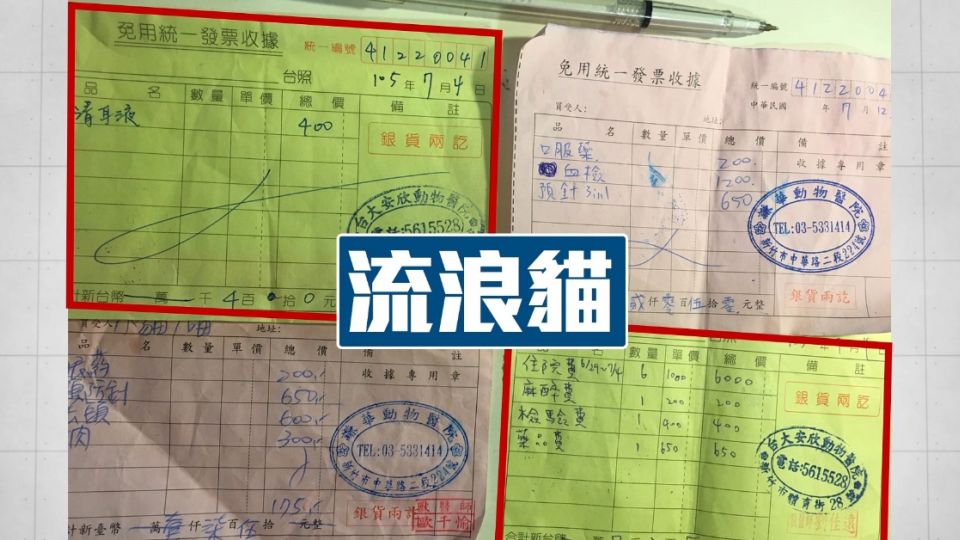 免用統一發票收據
統一編號 41220041
台照 105年7月4日
品名 數量 單價 總價 備註
清耳液 400
銀貨兩訖
台大安欣動物醫院
電話:5615528
計新台幣 萬 千 4 百 0 拾 0 元
免用統一發票收據
統一編號 4122004
中華民國 年 7 月 12
買受人:
地址:
品名 數量 單價 總價 備註
口服藥 200
收據專用章
血檢 1200
預針 3in1 650
獴華動物醫院
TEL:03-5331414
新竹市中華路二段224號
銀貨兩訖
貳仟零百伍拾零元整
流浪貓
買受人 小貓
地址:
品名 數量 單價 總價 備註
200
收據專用章
650
600
肉 300
動物醫院
TEL:03-5331414
新竹市中華路二段224號
1750
銀貨兩訖
歐醫師
歐千愉
計新臺幣 萬壹仟柒百伍拾 元整
台照
品名 數量 單價 總價 備註
住院費 6/29~7/4 6 1000 6000
麻醉費 1 200 200
銀貨兩訖
檢驗費 1 400 400
藥品費 1 650 650
台大安欣動物醫院
電話:5615528
新竹市體育街28
合計新台幣